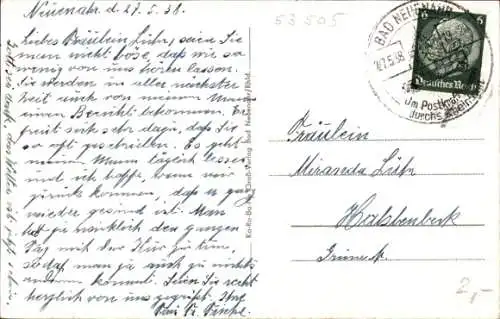 Neuenahr d. 27.5.38.
Liebes Fräulein Lühr, seien Sie
mir nicht böse, daß wir so
wenig von uns hören lassen.
Sie werden in aller nächster
Zeit auch von meinem Mann
einen Bericht bekommen. Er
freut sich sehr dazu, daß Sie
so oft geschrieben. Es geht
meinem Mann täglich besser
und ich hoffe, wenn wir
zurück kommen, daß er ganz
wieder gesund ist. Man
hat ja wirklich den ganzen
Tag mit der Kur zu tun,
sodaß man ja auch zu nichts
anderem kommt. Seien Sie recht
herzlich von uns gegrüßt. Ihre
Ka-Ro-Bo
Groß-Verlag Bad Neuenahr/Rhld.
53505
BAD NEUENAHR
27.5.38
Im Postkraft
durchs
6
6
Deutsches Reich
Fräulein
Miranda Lühr
Halstenbek
Grüner
2,-